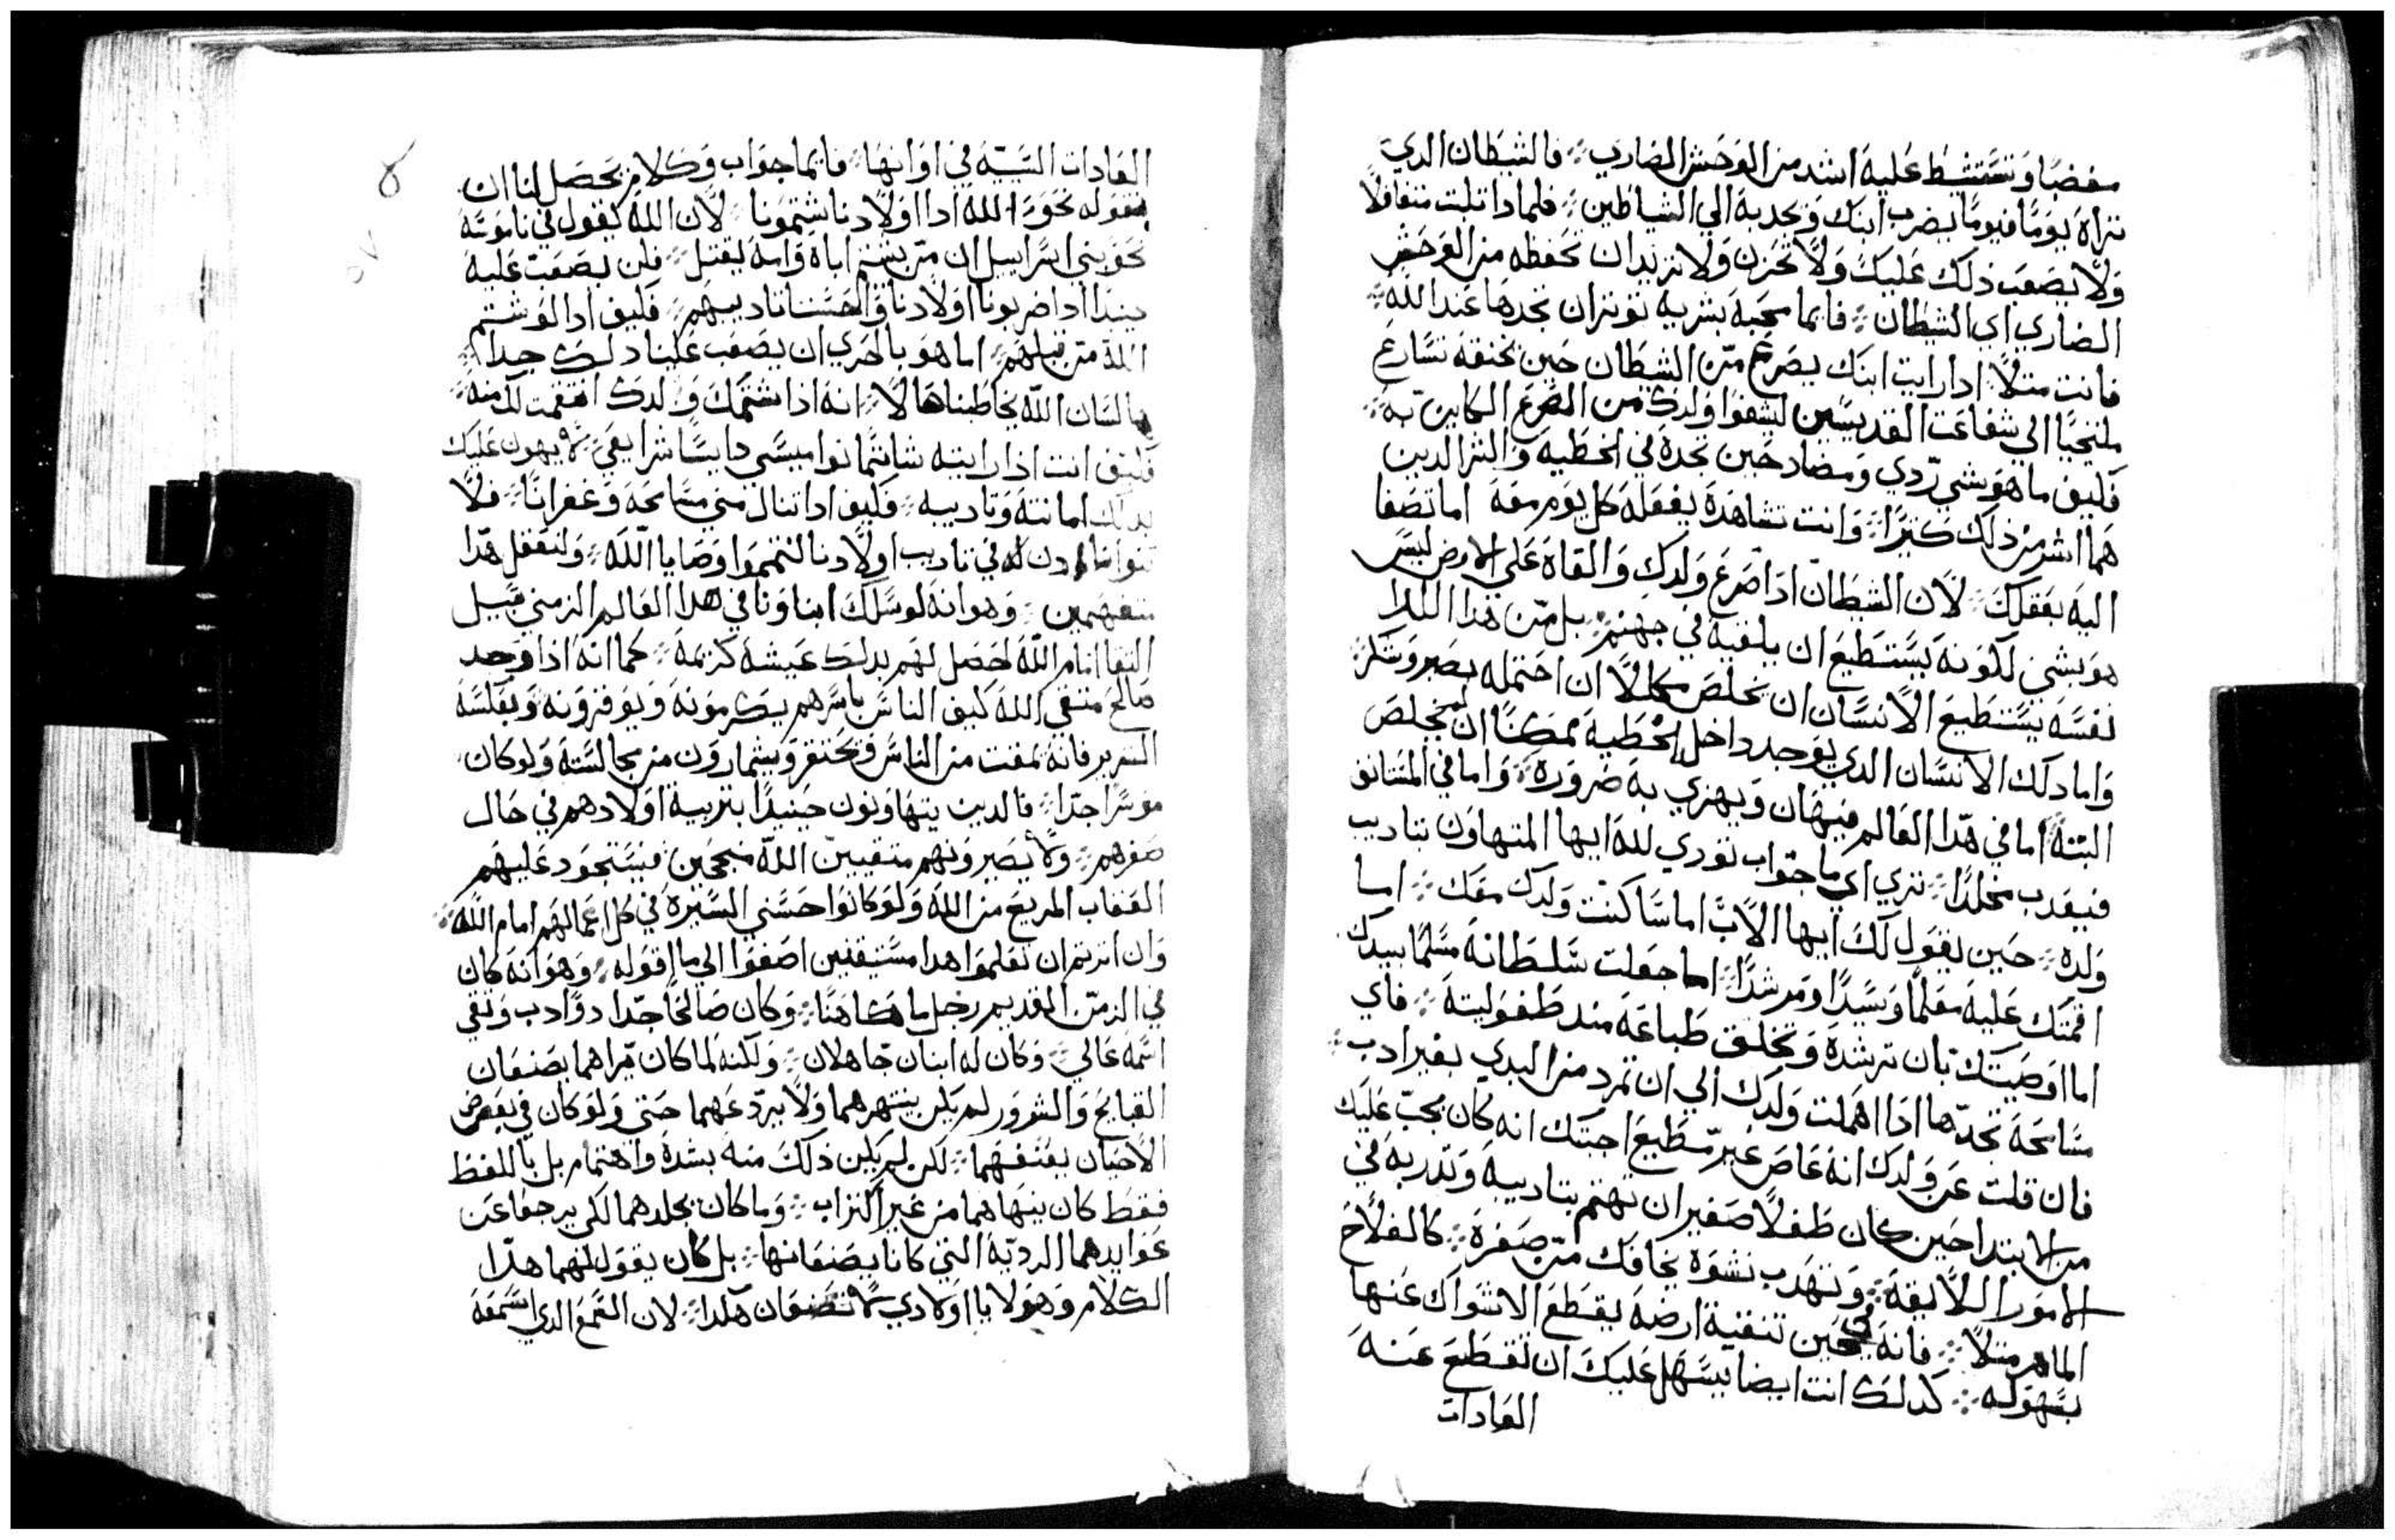 مغضبا وتستشط عليه اشد من الوحش الضاري فالشيطان الدي
تراه يوما فيوما يضرب ابنك ويجدبه الي الشياطين فلمادا تلبت متغافلا
ولا يصعب ذلك عليك ولا تحزن ولا تريد ان تحفظه من الوحش
الضاري اي الشيطان فايما محبة بشرية توتران تجدها عند الله
فانت متلا ادا رايت ابنك يصرع من الشيطان حين يخنقه تسارع
ملتجيا الي شفاعت القديسين ليشفوا ولدك من الصرع الكاين به
فكيف ما هو شي ردي ومضاد حين تجده في الخطيه والشر الدين
هما اشر من ذلك كتيرا وانت تشاهده يفعله كل يوم معه اما تصغا
اليه بعقلك لان الشيطان ادا صرع ولدك والقاه علي الارض ليس
هو بشي لكونه يستطيع ان يلقيه في جهنم بل من هدا البلا
نفسه يستطيع الانسان ان يخلص مكملا ان احتمله بصبر وشكر
واما دلك الانسان الدي يوجد داخل الخطية لمحكنا ان يخلص
البتة اما في هدا العالم فيهان ويهزي به ضرورة واما في المستانف
فيعدب مخلدا تري اي ما جواب تودي لله ايها المتهاون بتاديب
ولده حين يقول لك ايها الاب اما ساكنت ولدك معك اما
اقمتك عليه معلما وسيدا ومرشدا اما جعلت سلطانه مسلما بيدك
اما اوصيتك بان ترشده وتخلق طباعه مند طفوليته فاي
مسامحة تجدها ادا اهملت ولدك الي ان تمرد من البدي بغير ادب
فان قلت عن ولدك انه عاص غير مطيع اجبتك انه كان يجب عليك
من الابتدا حين كان طفلا صغير ان تهتم بتاديبه وتدربه في
الامور اللايقه وتهدب نشوه بخافك من صغره كالفلاح
الماهر متلا فانه في حين تنقية ارضه يقطع الاشواك عنها
بسهوله كدلك انت ايضا يسهل عليك ان تقطع عنه
العادات
العادات السيية في اوانها فايما جواب وكلام يحصل لنا ان
نقوله نحو الله ادا اولادنا شتمونا لان الله يقول في ناموسه
نحو بني اسراييل ان من يشتم اباه وامه يقتل فلن يصعب عليه
حينيدا ادا ضربونا اولادنا واحسنا تاديبهم فكيف ادا لو شتم
الله من قبلهم اما هو بالحري ان يصعب علينا دلك جيدا
لسان الله يخاطبنا هالا انه اذا شتمك ولدك انتقمت لك منه
فكيف انت اذا رايته شاتما نواميسي دايسا شرايعي يهون عليك
بدلك امانته وتاديبه فكيف ادا تنال مني مسامحة وغفرانا فلا
نتوانا ادن في تاديب اولادنا لنتمموا وصايا الله ولنعقل هدا
متفهمين وهو انه لو سلك ابناونا في هدا العالم الزمني سبيل
التقا امام الله لحصل لهم بدلك عيشه كريمه كما انه اذا وجد
صالح متقي الله كيف الناس باسرهم يكرمونه ويوقرونه وبعكسه
الشرير فانه يمقت من الناس ويحتقر ويشمازون من مجالسته ولو كان
موسرا جدا فالدين يتهاونون حينيدا بتربية اولادهم في حال
صغرهم ولا يصيرونهم متقيين الله منجحين فيستحود عليهم
العقاب المريع من الله ولو كانوا حسني السيرة في كل اعمالهم امام الله
وان اترتم ان تعلموا هدا مستيقنين اصغوا الي ما اقوله وهو انه كان
في الزمن القديم رجل ما كاهنا وكان صالحا جدا دو ادب وتقي
اسمه عالي وكان له ابنان جاهلان ولكنه لما كان يراهما يصنعان
القبايح والشرور لم يكن ينتهرهما ولا يردعهما حتي ولو كان في بعض
الاحيان يعنفهما لكن لم يكن ذلك منه بشدة واهتمام بل باللفظ
فقط كان ينهاهما من غير اكتراب وما كان يجلدهما لكي يرجعا عن
عوايدهما الرديه التي كانا يصنعانها بل كان يقول لهما هدا
الكلام وهو لا يا اولادي لا تصنعان هكدا لان السمع الدي اسمعه